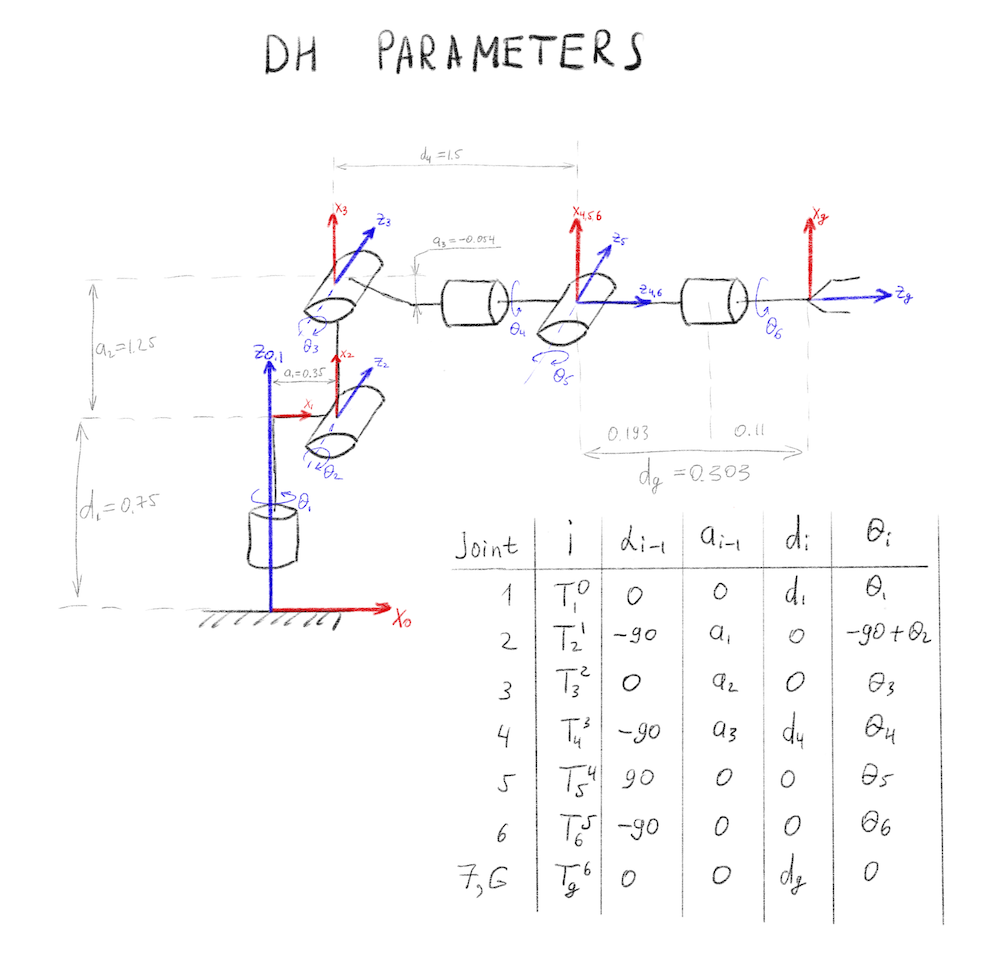 DH PARAMETERS
d₄=1.5
x₃
z₃
x₄,₅,₆
z₅
x_g
a₃=-0.054
z₄,₆
z_g
θ₄
θ₆
θ₃
θ₅
a₂=1.25
z₀,₁
a₁=0.35
x₂
z₂
x₁
θ₂
0.193 0.11
d_g=0.303
d₁=0.75
θ₁
x₀
Joint i αᵢ₋₁ aᵢ₋₁ dᵢ θᵢ
1 T₁⁰ 0 0 d₁ θ₁
2 T₂¹ -90 a₁ 0 -90+θ₂
3 T₃² 0 a₂ 0 θ₃
4 T₄³ -90 a₃ d₄ θ₄
5 T₅⁴ 90 0 0 θ₅
6 T₆⁵ -90 0 0 θ₆
7,G T_g⁶ 0 0 d_g 0